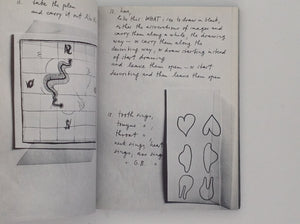 11. take the plan
and carry it out
12. hmm,
like this WHAT is to draw in black,
take the accumulations of images and
carry them along a while, the drawing
way — or carry them along the
describing way, or draw starting instead
of start drawing
and leave them open — or start
describing and then leave them open
13. tooth rings,
tongue ",
throat ",
neck rings, heart
rings, nose rings
" G.B. "